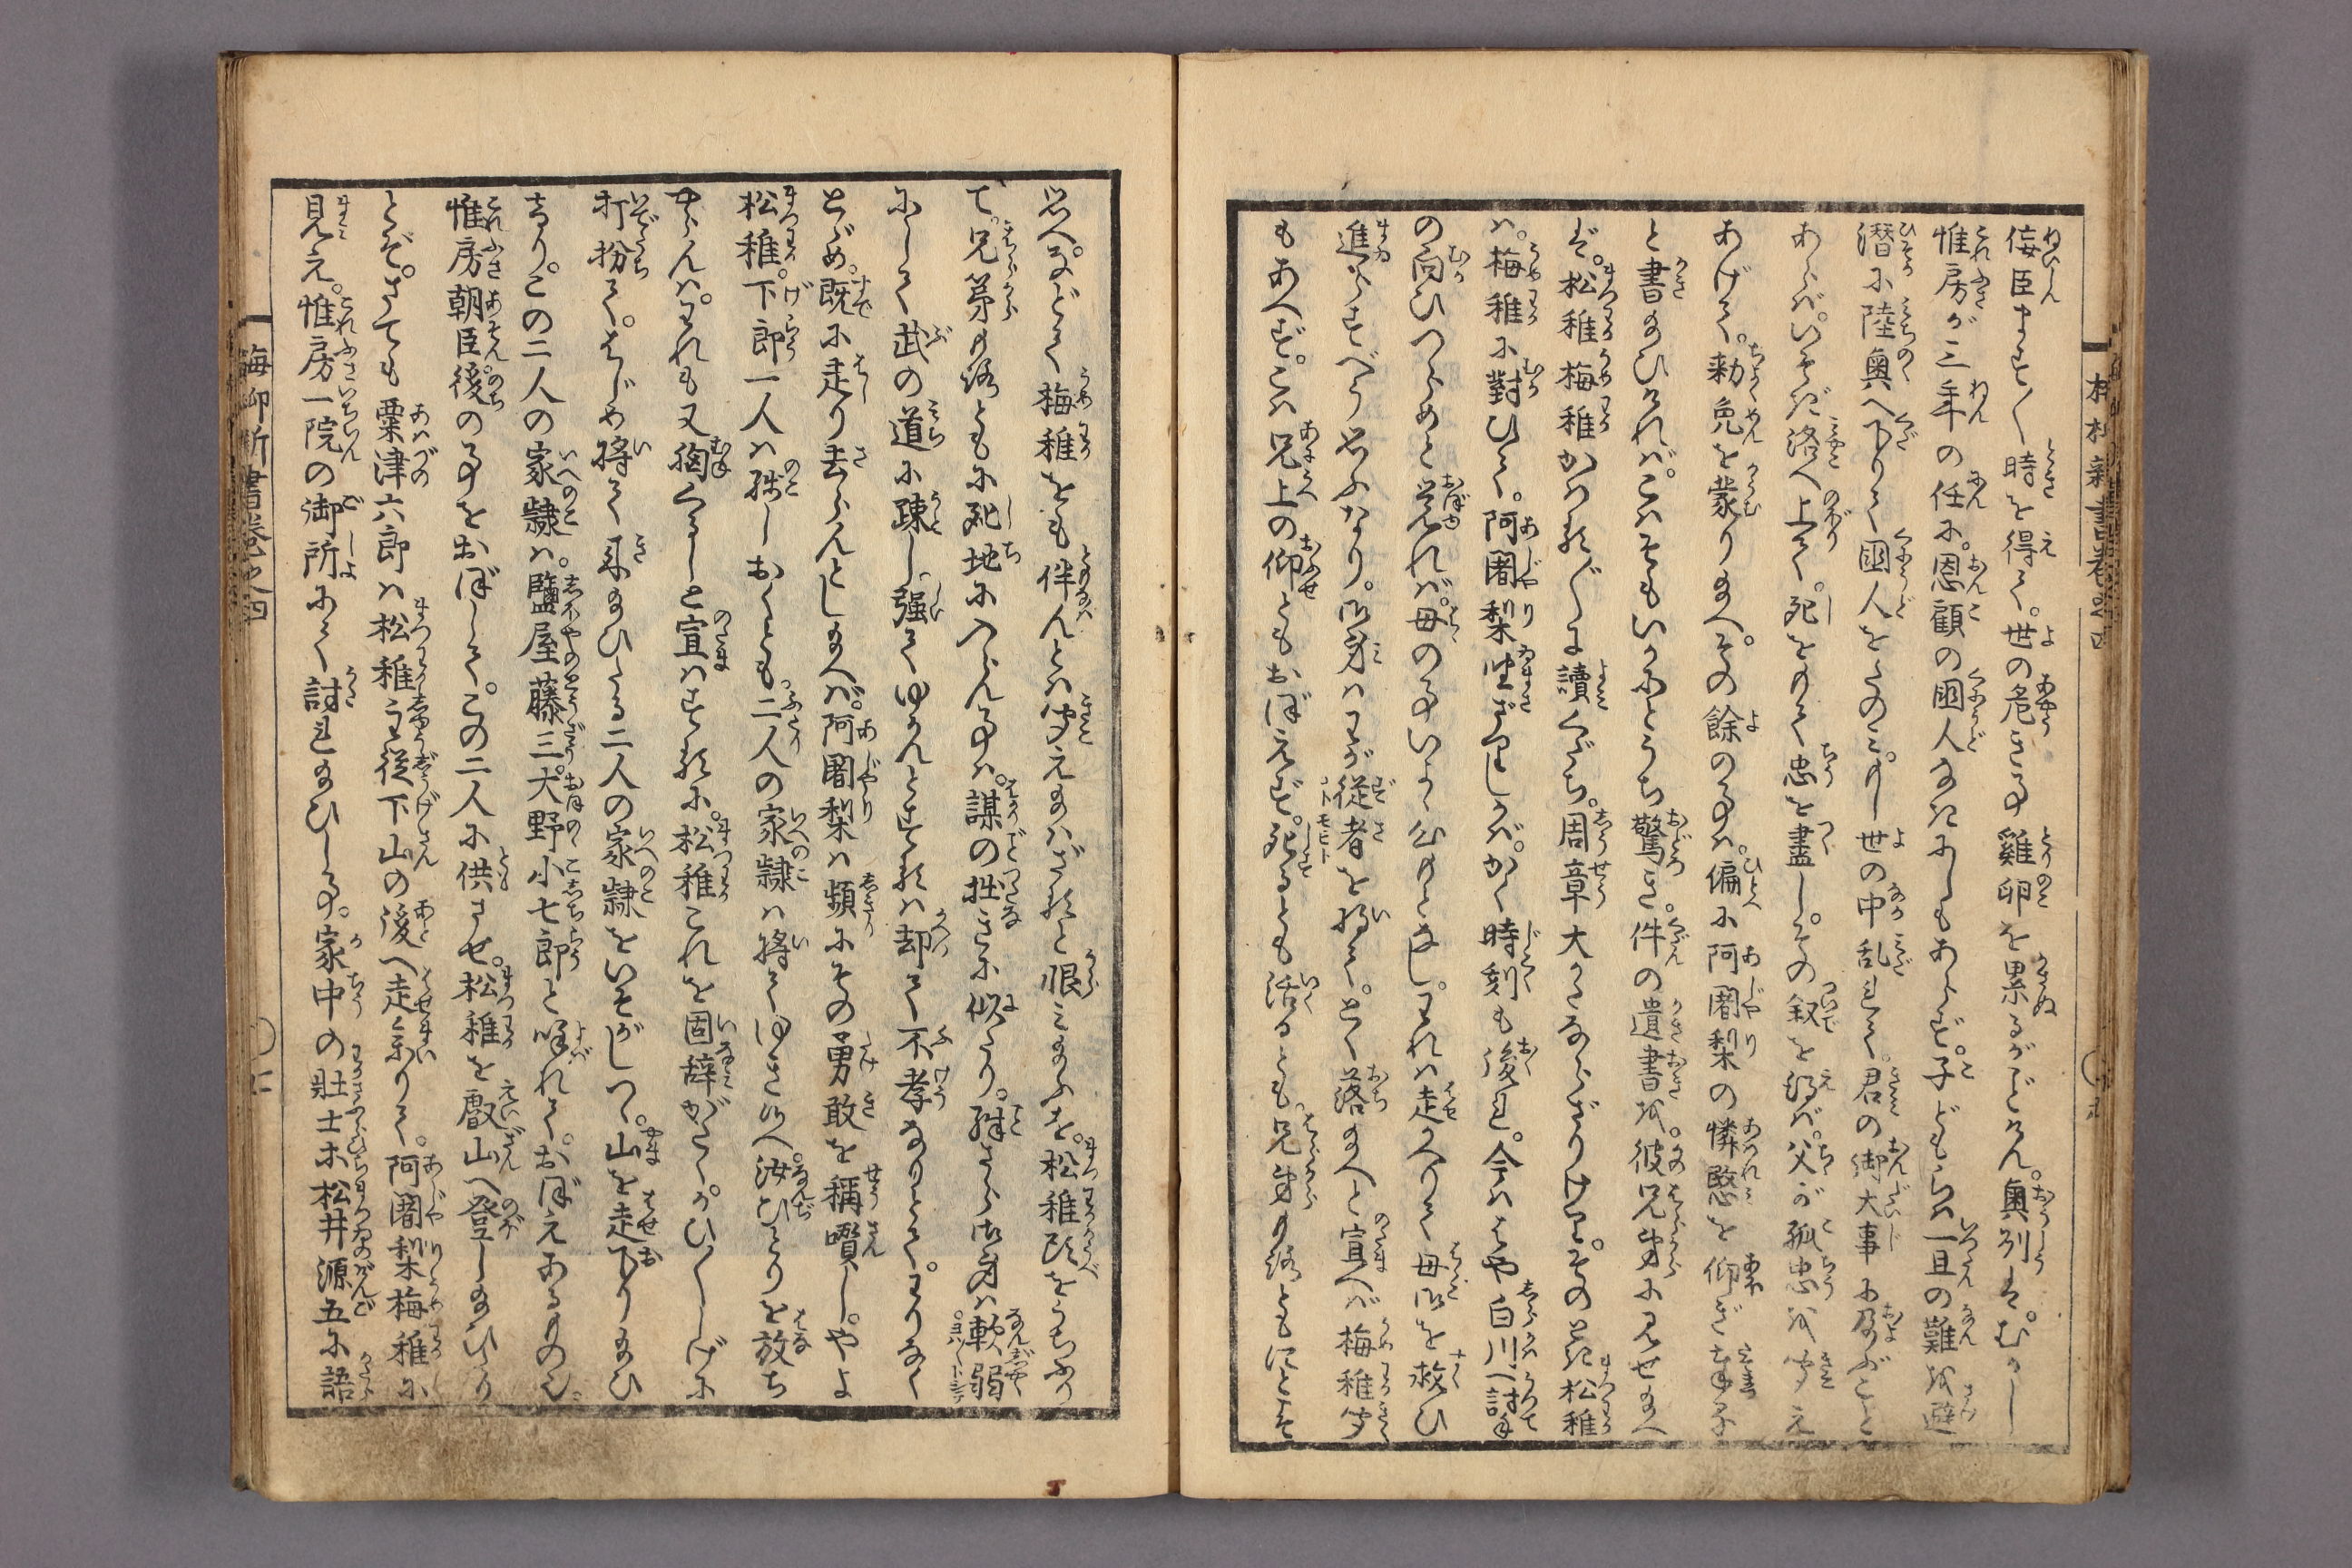 佞臣ます〳〵時を得て。世の危き事雞卵を累るがごとけん。奥列は。むかし
惟房が三年の任に。恩顧の国人なきにしもあらず。子どもらは一旦の難を避
潜に陸奥へ下りて国人をたのみ。もし世の中乱れて。君の御大事に及ぶこと
あらば。いそぎ洛へ上て。死をもて忠を盡し。その叙を得ば。父が孤忠を聞え
あげて。勅免を蒙り給へ。その餘の事は。偏に阿闍梨の憐愍を仰ぎ奉る
と書給ひければ。こはそもいかにとうち驚き。件の遺書を。彼兄弟に見せ給へ
ば。松稚梅稚かはる〴〵に讀くだち。周章大かたならざりけり。そのとき松稚
は。梅稚に對ひて。阿闍梨坐ざりしかば。かく時刻も後れ。今はゝや白川へ討手
の向ひつらめと覚れば。母の事いと心もとなし。われは走かへりて母御を救ひ
進らすべう思ふなり。御身はわが従者を將て。とく落給へと宣へば梅稚聞
もあへず。こは兄上の仰ともおぼえず。死るとも活るとも。兄弟もろともにとこそ
思へ。などて梅稚をも伴んとは聞え給はざると恨み給ふを。松稚頭をうちふり
て。兄弟もろともに死地に入らん事は。謀の拙きに似たり。殊さら御身は軟弱
にして武の道に疎し。強てゆかんとするは却て不孝なりとて。わりなく
とゞめ。既に走り去らんとし給へば。阿闍梨は頻にその勇敢を稱嘆し。やよ
松稚。下郎一人は殘しおくとも。二人の家隷は將てゆき給へ。汝ひとりを放ち
やらんは。われも又胸くるしと宣はするに。松稚これを固辞がたく。かひ〴〵しげに
打扮て。はじめ將て来給ひたる二人の家隷をいそがしつゝ。山を走下り給ひ
けり。この二人の家隷は。鹽屋藤三。大野小七郎と呼れて。おぼえあるものゝ
惟房朝臣後の事をおぼして。この二人に供させ。松稚を叡山へ登し給ひけり
とぞ。さても粟津六郎は松稚主従下山の後へ走来りて。阿闍梨梅稚に
見え。惟房一院の御所にて討れ給ひし事。家中の壮士ホ松井源五に語
梅柳新書巻之四